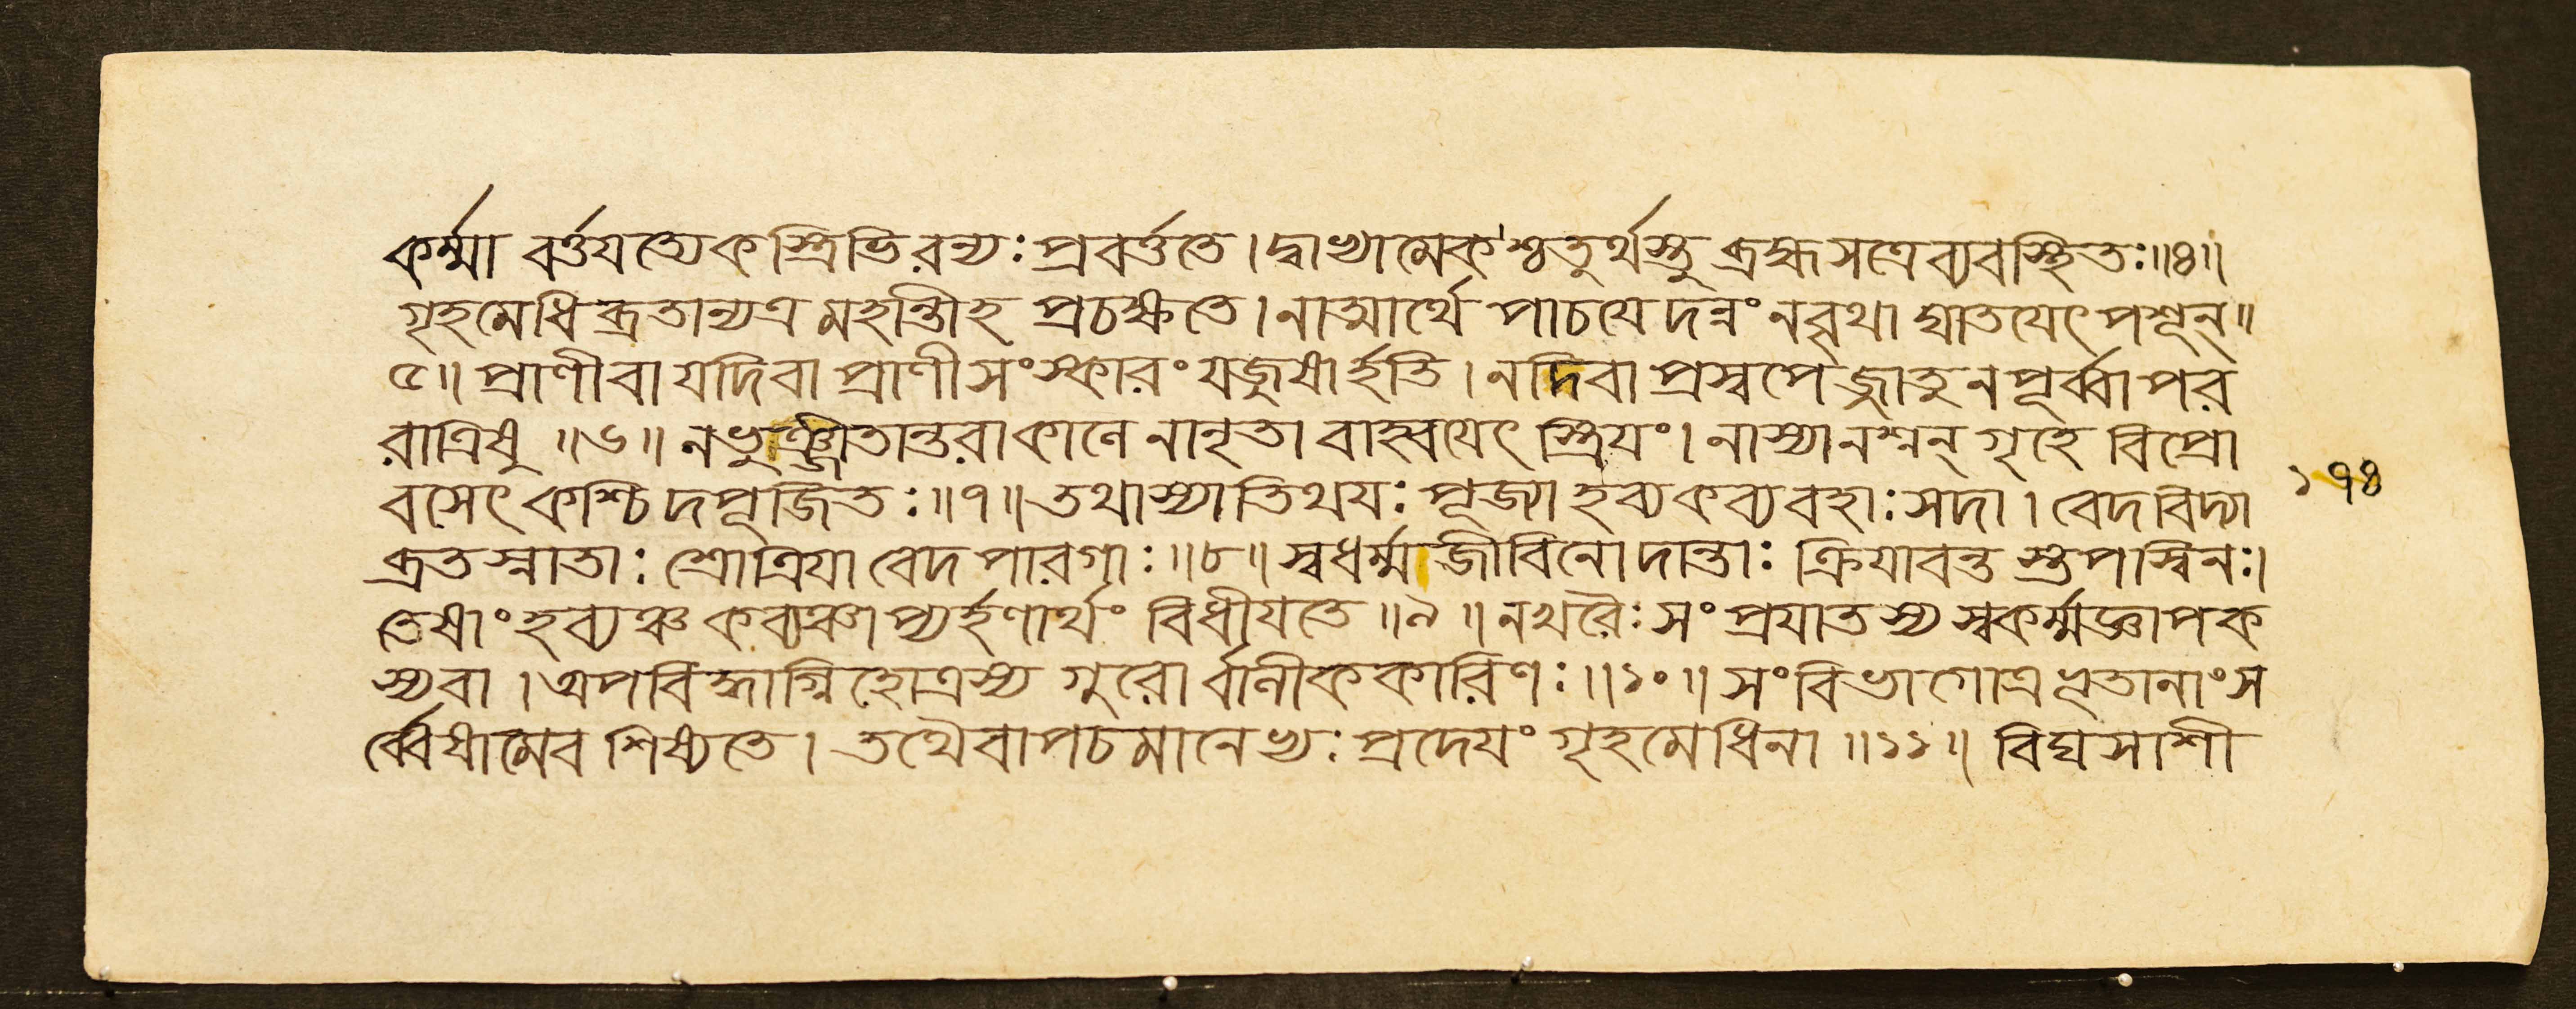 কর্ম্মা বর্ত্তযত্যেকস্ত্রিভিরন্যঃ প্রবর্ত্ততে। দ্বাভ্যামেকশ্চতুর্থস্তু ব্রহ্মসত্রেব্যবস্থিতঃ॥৪॥
গৃহমেধিব্রতান্যত্র মহান্তীহ প্রচক্ষতে। নাত্মার্থে পাচযেদন্নং নবৃথা ঘাতযেৎ পশূন্॥
৫॥ প্রাণীবা যদিবা প্রাণী সংস্কারং যজুষার্হতি। নদিবা প্রস্বপেজ্জাতু নপূর্ব্বাপর
রাত্রিষু ॥৬॥ নভুঞ্জীতান্তরাকালে নানৃতাবাহ্বযেৎ স্ত্রিযং। নাস্যানশ্নন্ গৃহে বিপ্রো
বসেৎ কশ্চিদপূজিতঃ॥৭॥ তথাস্যাতিথযঃ পূজ্যা হব্যকব্যবহাঃ সদা। বেদবিদ্যা
ব্রতস্নাতাঃ শ্রোত্রিযা বেদপারগাঃ॥৮॥ স্বধর্ম্মজীবিনো দান্তাঃ ক্রিযাবন্তস্তপস্বিনঃ।
তেষাং হব্যঞ্চ কব্যঞ্চাপ্যর্হণার্থং বিধীযতে॥৯॥ নখরৈঃ সংপ্রযাতস্য স্বকর্ম্মজ্ঞাপক
স্যবা। অপবিদ্ধাগ্নিহোত্রস্য গুরোর্বালীককারিণঃ॥১০॥ সংবিভাগোত্র ভূতানাং স
র্ব্বেষামেব শিষ্যতে। তথৈবাপচমানেভ্যঃ প্রদেযং গৃহমেধিনা॥১১॥ বিঘসাশী
১৭৪